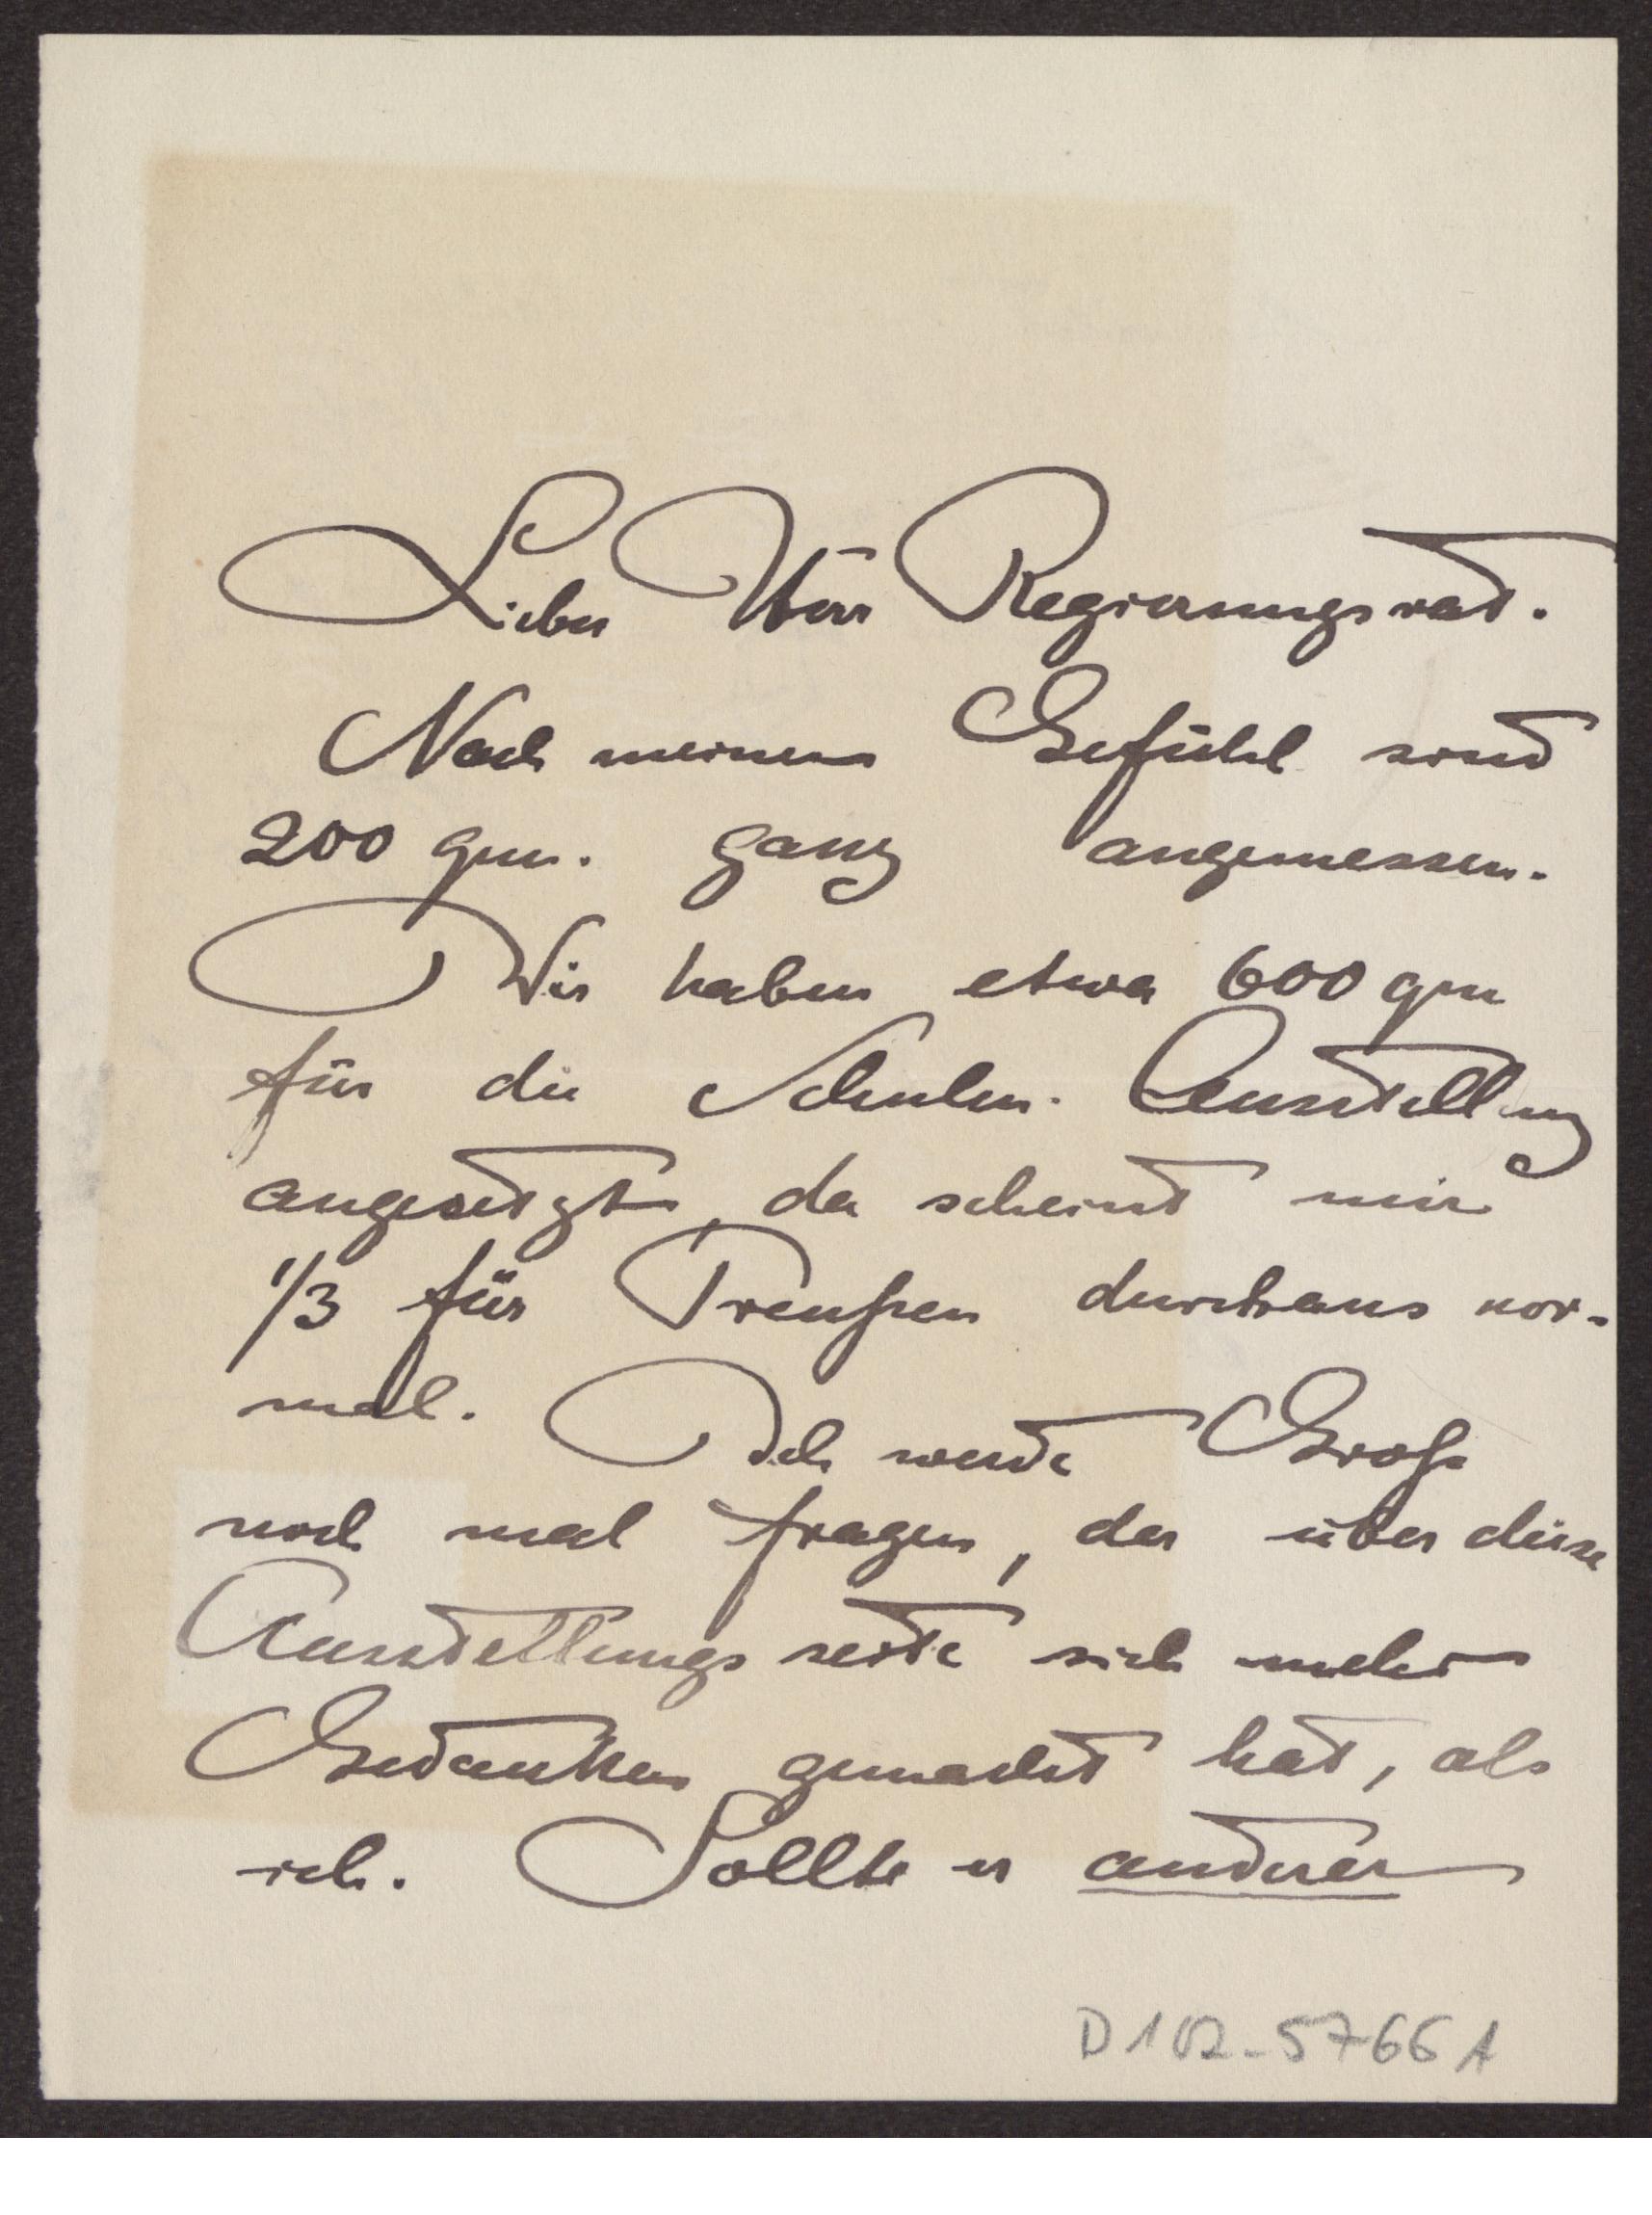 Lieber Herr Regierungsrat.
Nach meinem Gefühl sind
200 qm. ganz angemessen.
Wir haben etwa 600 qm
für die Schulen-Ausstellung
angesetzt, da scheint mir
1/3 für Preußen durchaus nor-
mal. Ich werde Groß
noch mal fragen, der über diese
Ausstellungsseite sich mehr
Gedanken gemacht hat, als
ich. Sollte er anderer
D102-5766A